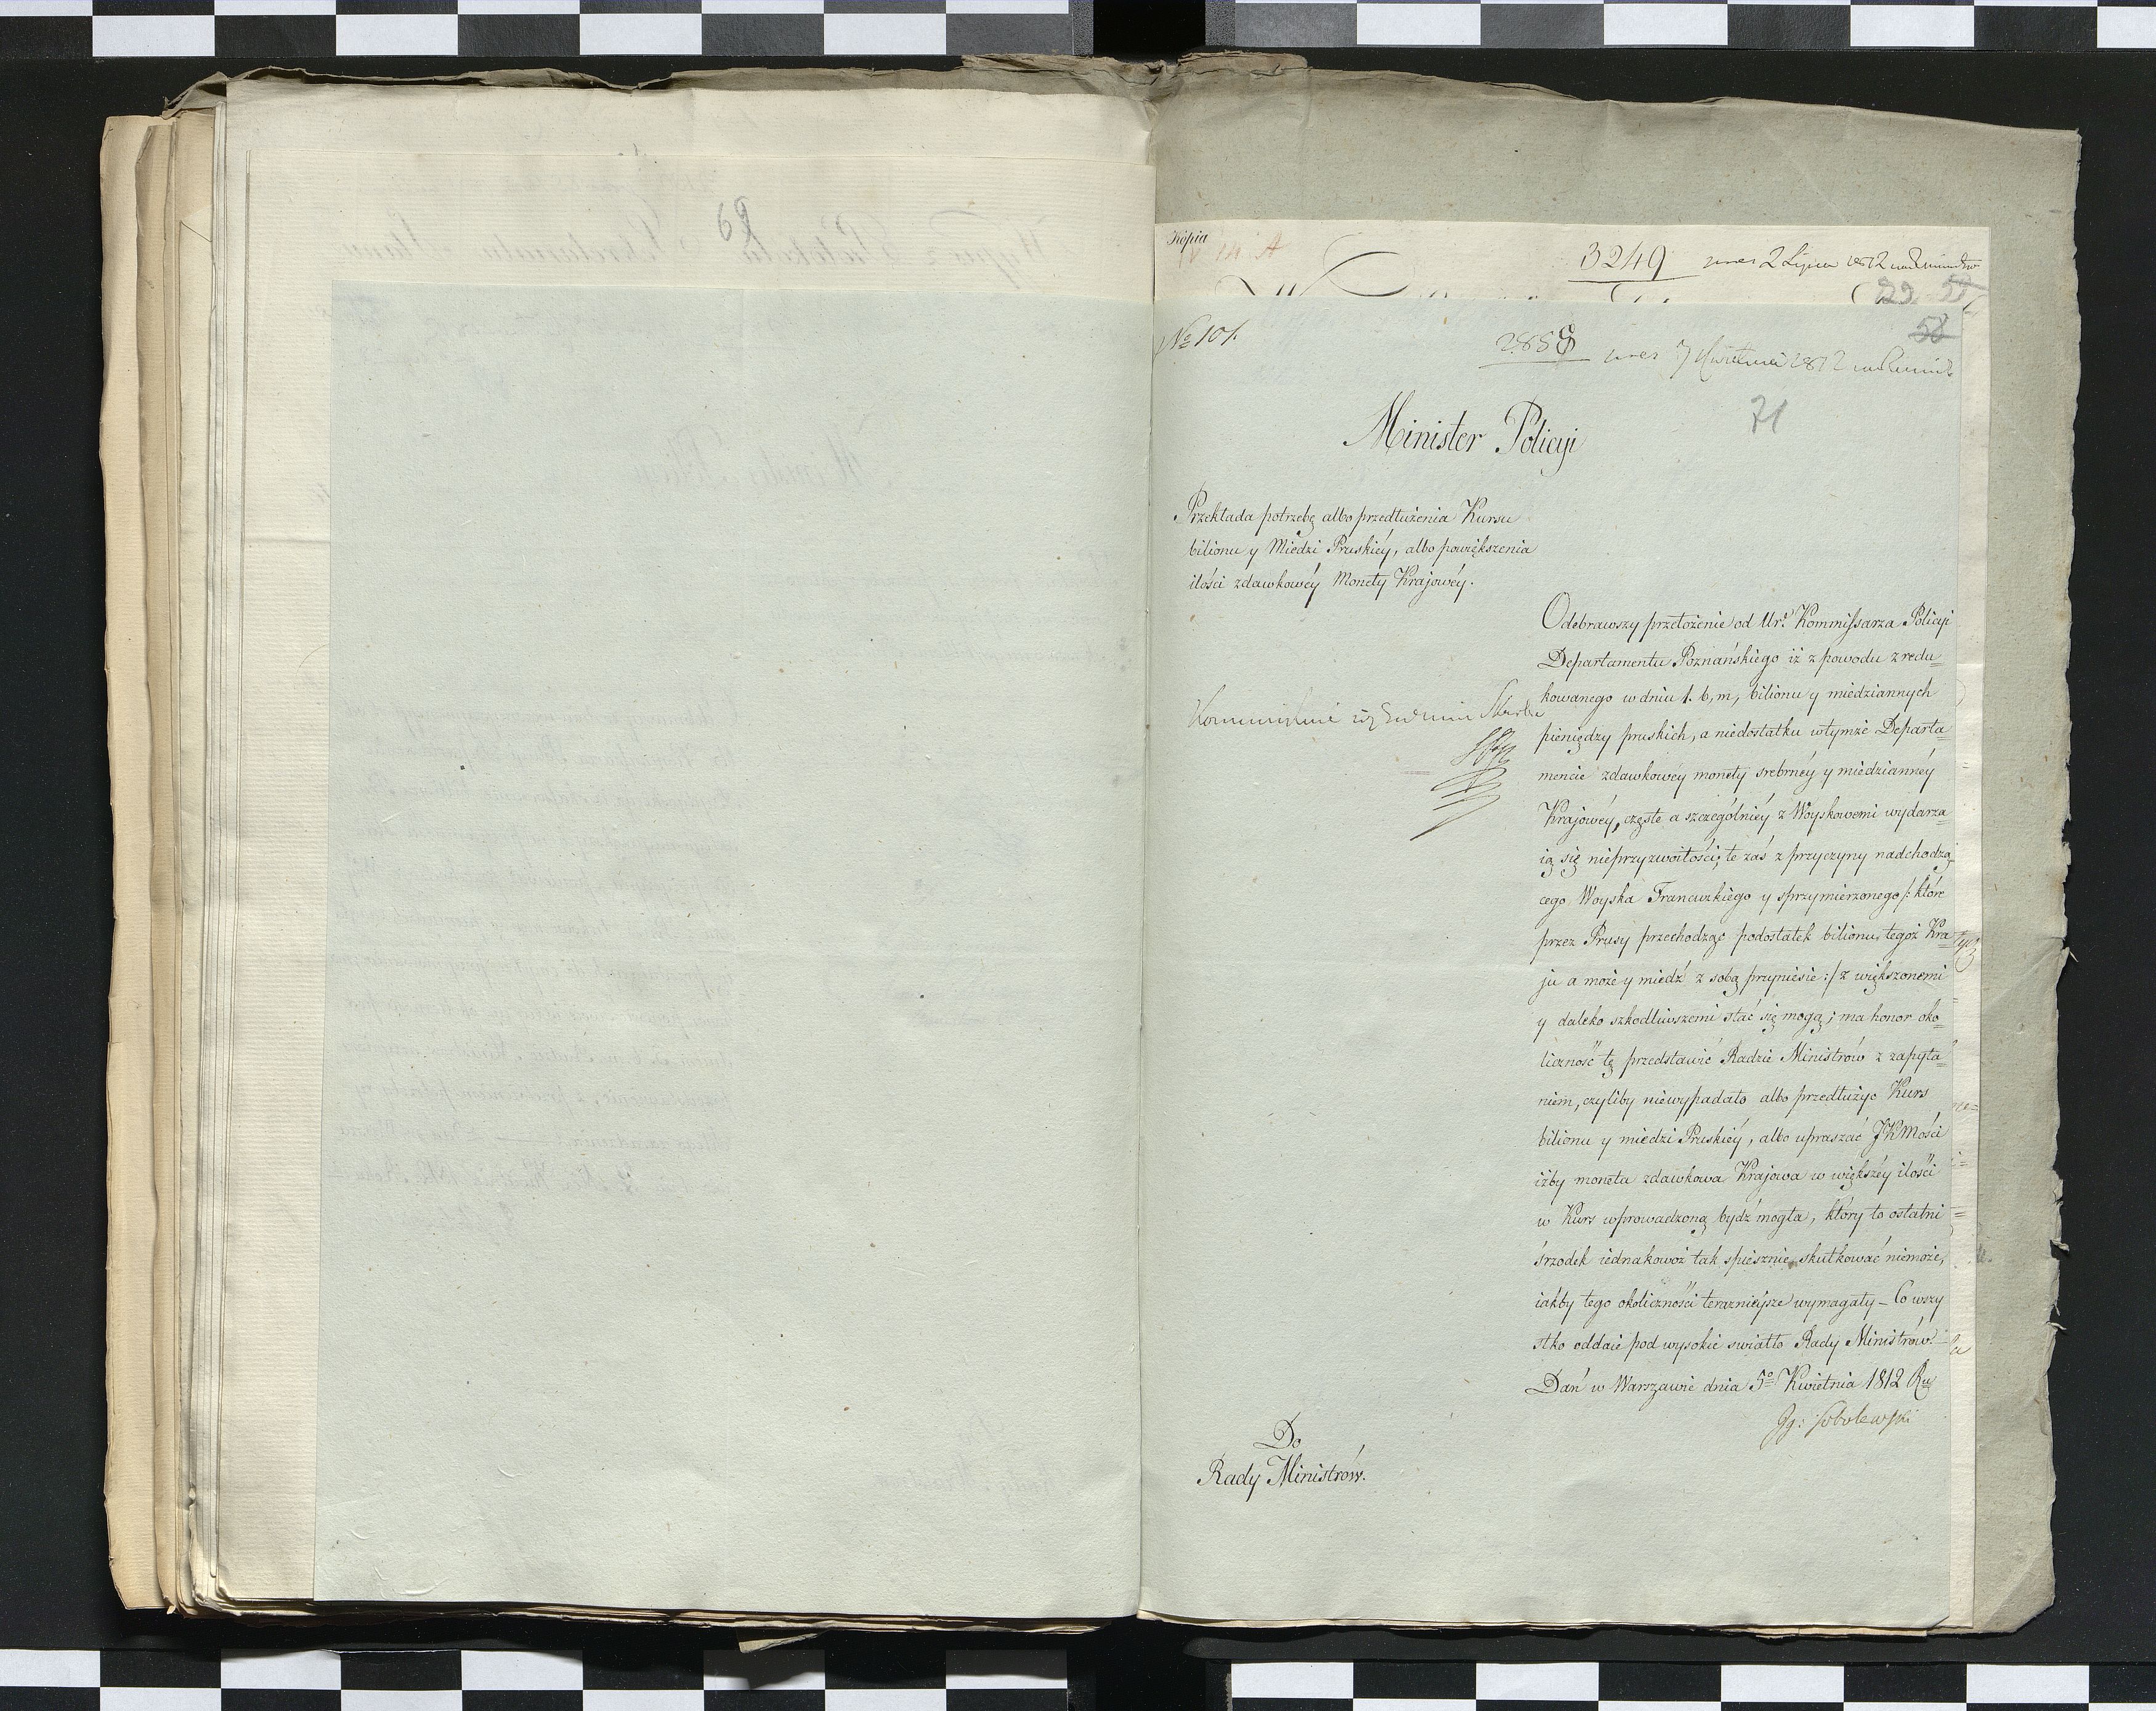 69
Kopia
3249
2 Lipca 1812
22
№ 101.
58
2858
7 Kwietnia 1812
71
Minister Policyi
Przekłada potrzebę albo przedłużenia Kursu
bilionu y Miedzi Pruskiéy, albo powiększenia
ilości zdawkowéy Monety Krajowéy.
Odebrawszy przełożenie od Ur. Kommissarza Policyi
Departamentu Poznańskiego iż z powodu zredu=
kowanego w dniu 1. b, m, bilionu y miedziannych
pieniędzy pruskich, a niedostatku wtymże Departa=
mencie zdawkowéy monety srebrnéy y miedziannéy
Krajowéy, częste a szczególniéy z Woyskowemi wydarza=
ią się nieprzyzwoitości; te zaś z przyczyny nadchodzą=
cego Woyska Francuzkiego y sprzymierzonego /: które
przez Prusy przechodząc podostatek bilionu tegoż Kra=
ju a może y miedź z sobą przyniesie :/ z większonemi
y daleko szkodliwszemi stać się mogą; ma honor oko=
liczność tę przedstawić Radzie Ministrów z zapyta=
niem, czyliby niewypadało albo przedłużyc Kurs
bilionu y miedzi Pruskiéy, albo upraszać JKMości
iżby moneta zdawkowa Krajowa w większéy ilości
w Kurs wprowadzoną bydź mogła, który to ostatni
śrzodek iednakowoż tak spiesznie skutkować niemoże,
iakby tego okoliczności teraznieysze wymagały – Co wszy
stko oddaie pod wysokie swiatło Rady Ministrów. –
Dań w Warszawie dnia 5º Kwietnia 1812 Ru
Sobolewski
Kommunikuie się
Do
Rady Ministrów.